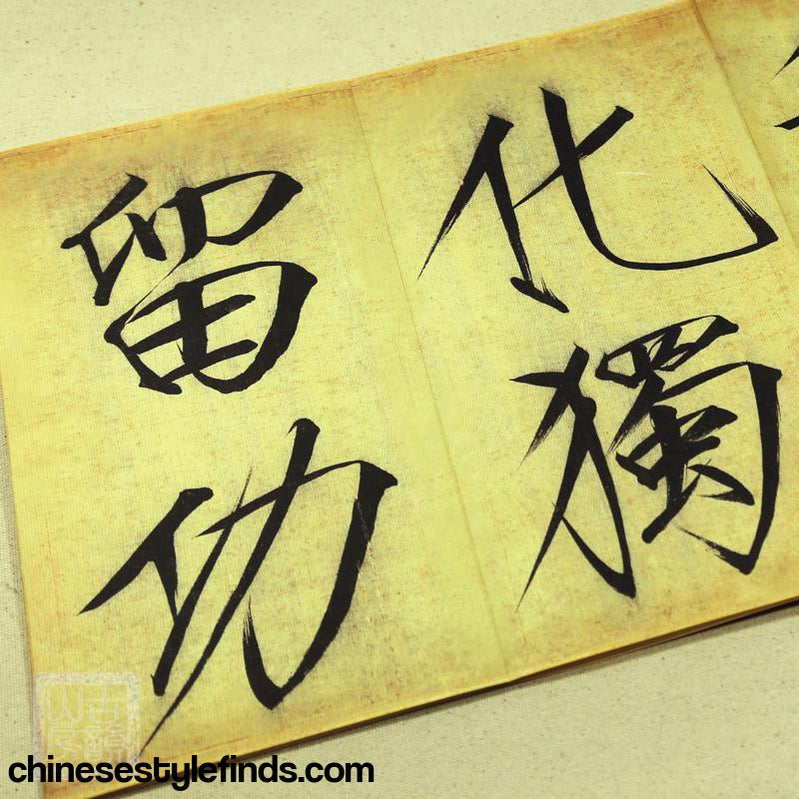 化獨
留功
古韻
山房
chinesestylefinds.com